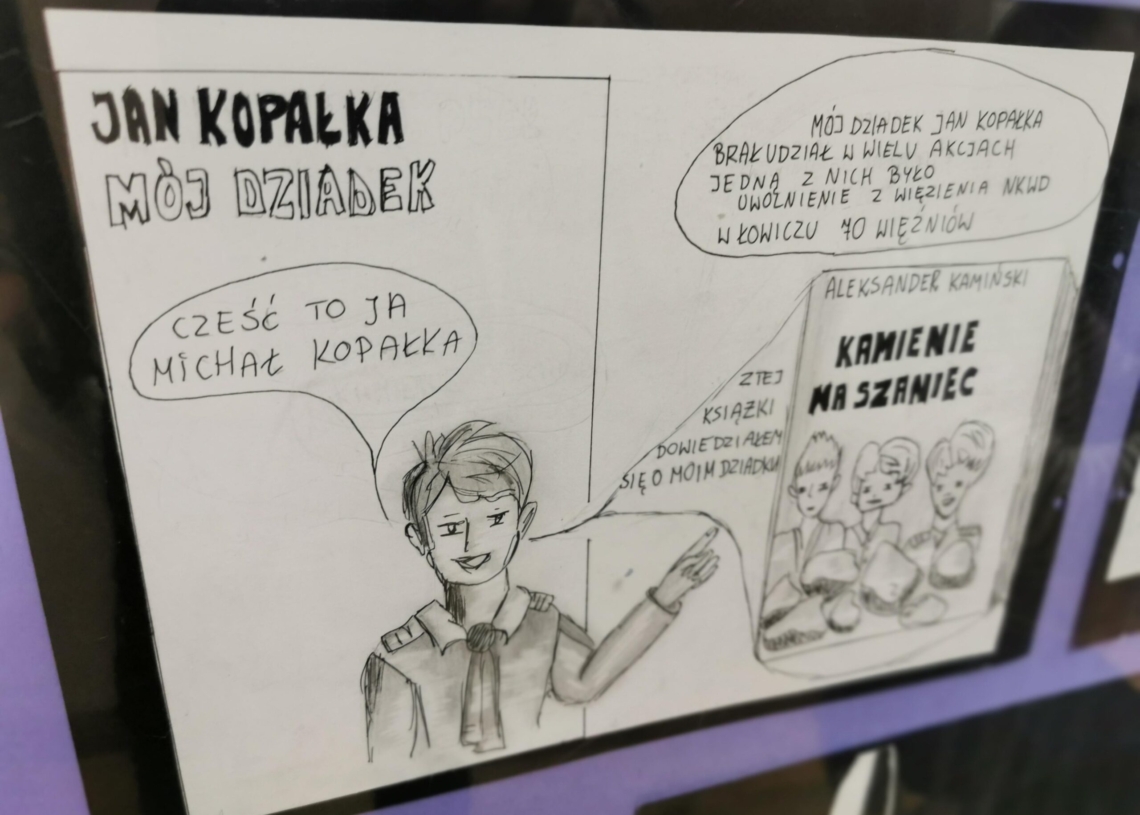 JAN KOPAŁKA
MÓJ DZIADEK
CZEŚĆ TO JA
MICHAŁ KOPAŁKA
MÓJ DZIADEK JAN KOPAŁKA
BRAŁ UDZIAŁ W WIELU AKCJACH
JEDNĄ Z NICH BYŁO
UWOLNIENIE Z WIĘZIENIA NKWD
W ŁOWICZU 70 WIĘŹNIÓW
Z TEJ
KSIĄŻKI
DOWIEDZIAŁEM
SIĘ O MOIM DZIADKU
ALEKSANDER KAMIŃSKI
KAMIENIE
NA SZANIEC